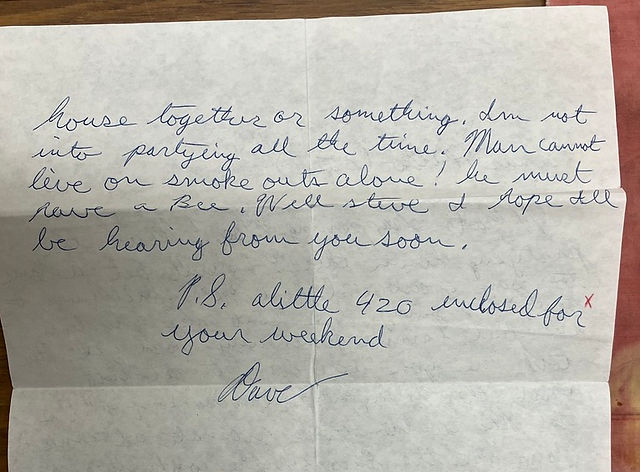 house together or something. Im not
into partying all the time. Man cannot
live on smoke outs alone! he must
have a Bee. Well steve I hope Ill
be hearing from you soon.
P.S. alittle 420 enclosed for x
your weekend
Dave